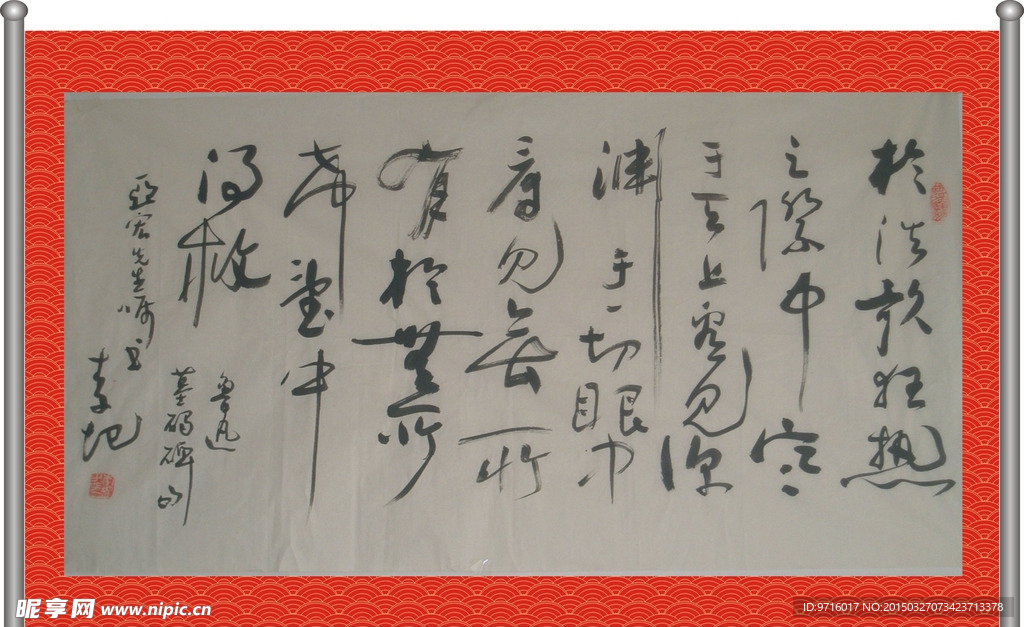 於浩歌狂熱
之際中寒
于天上看見深
淵于一切眼中
看見無所
有於無所
希望中
得救
魯迅
墓碣碑
亞宏先生嘱书
昵享网 www.nipic.cn
ID:9716017 NO:20150327073423713378